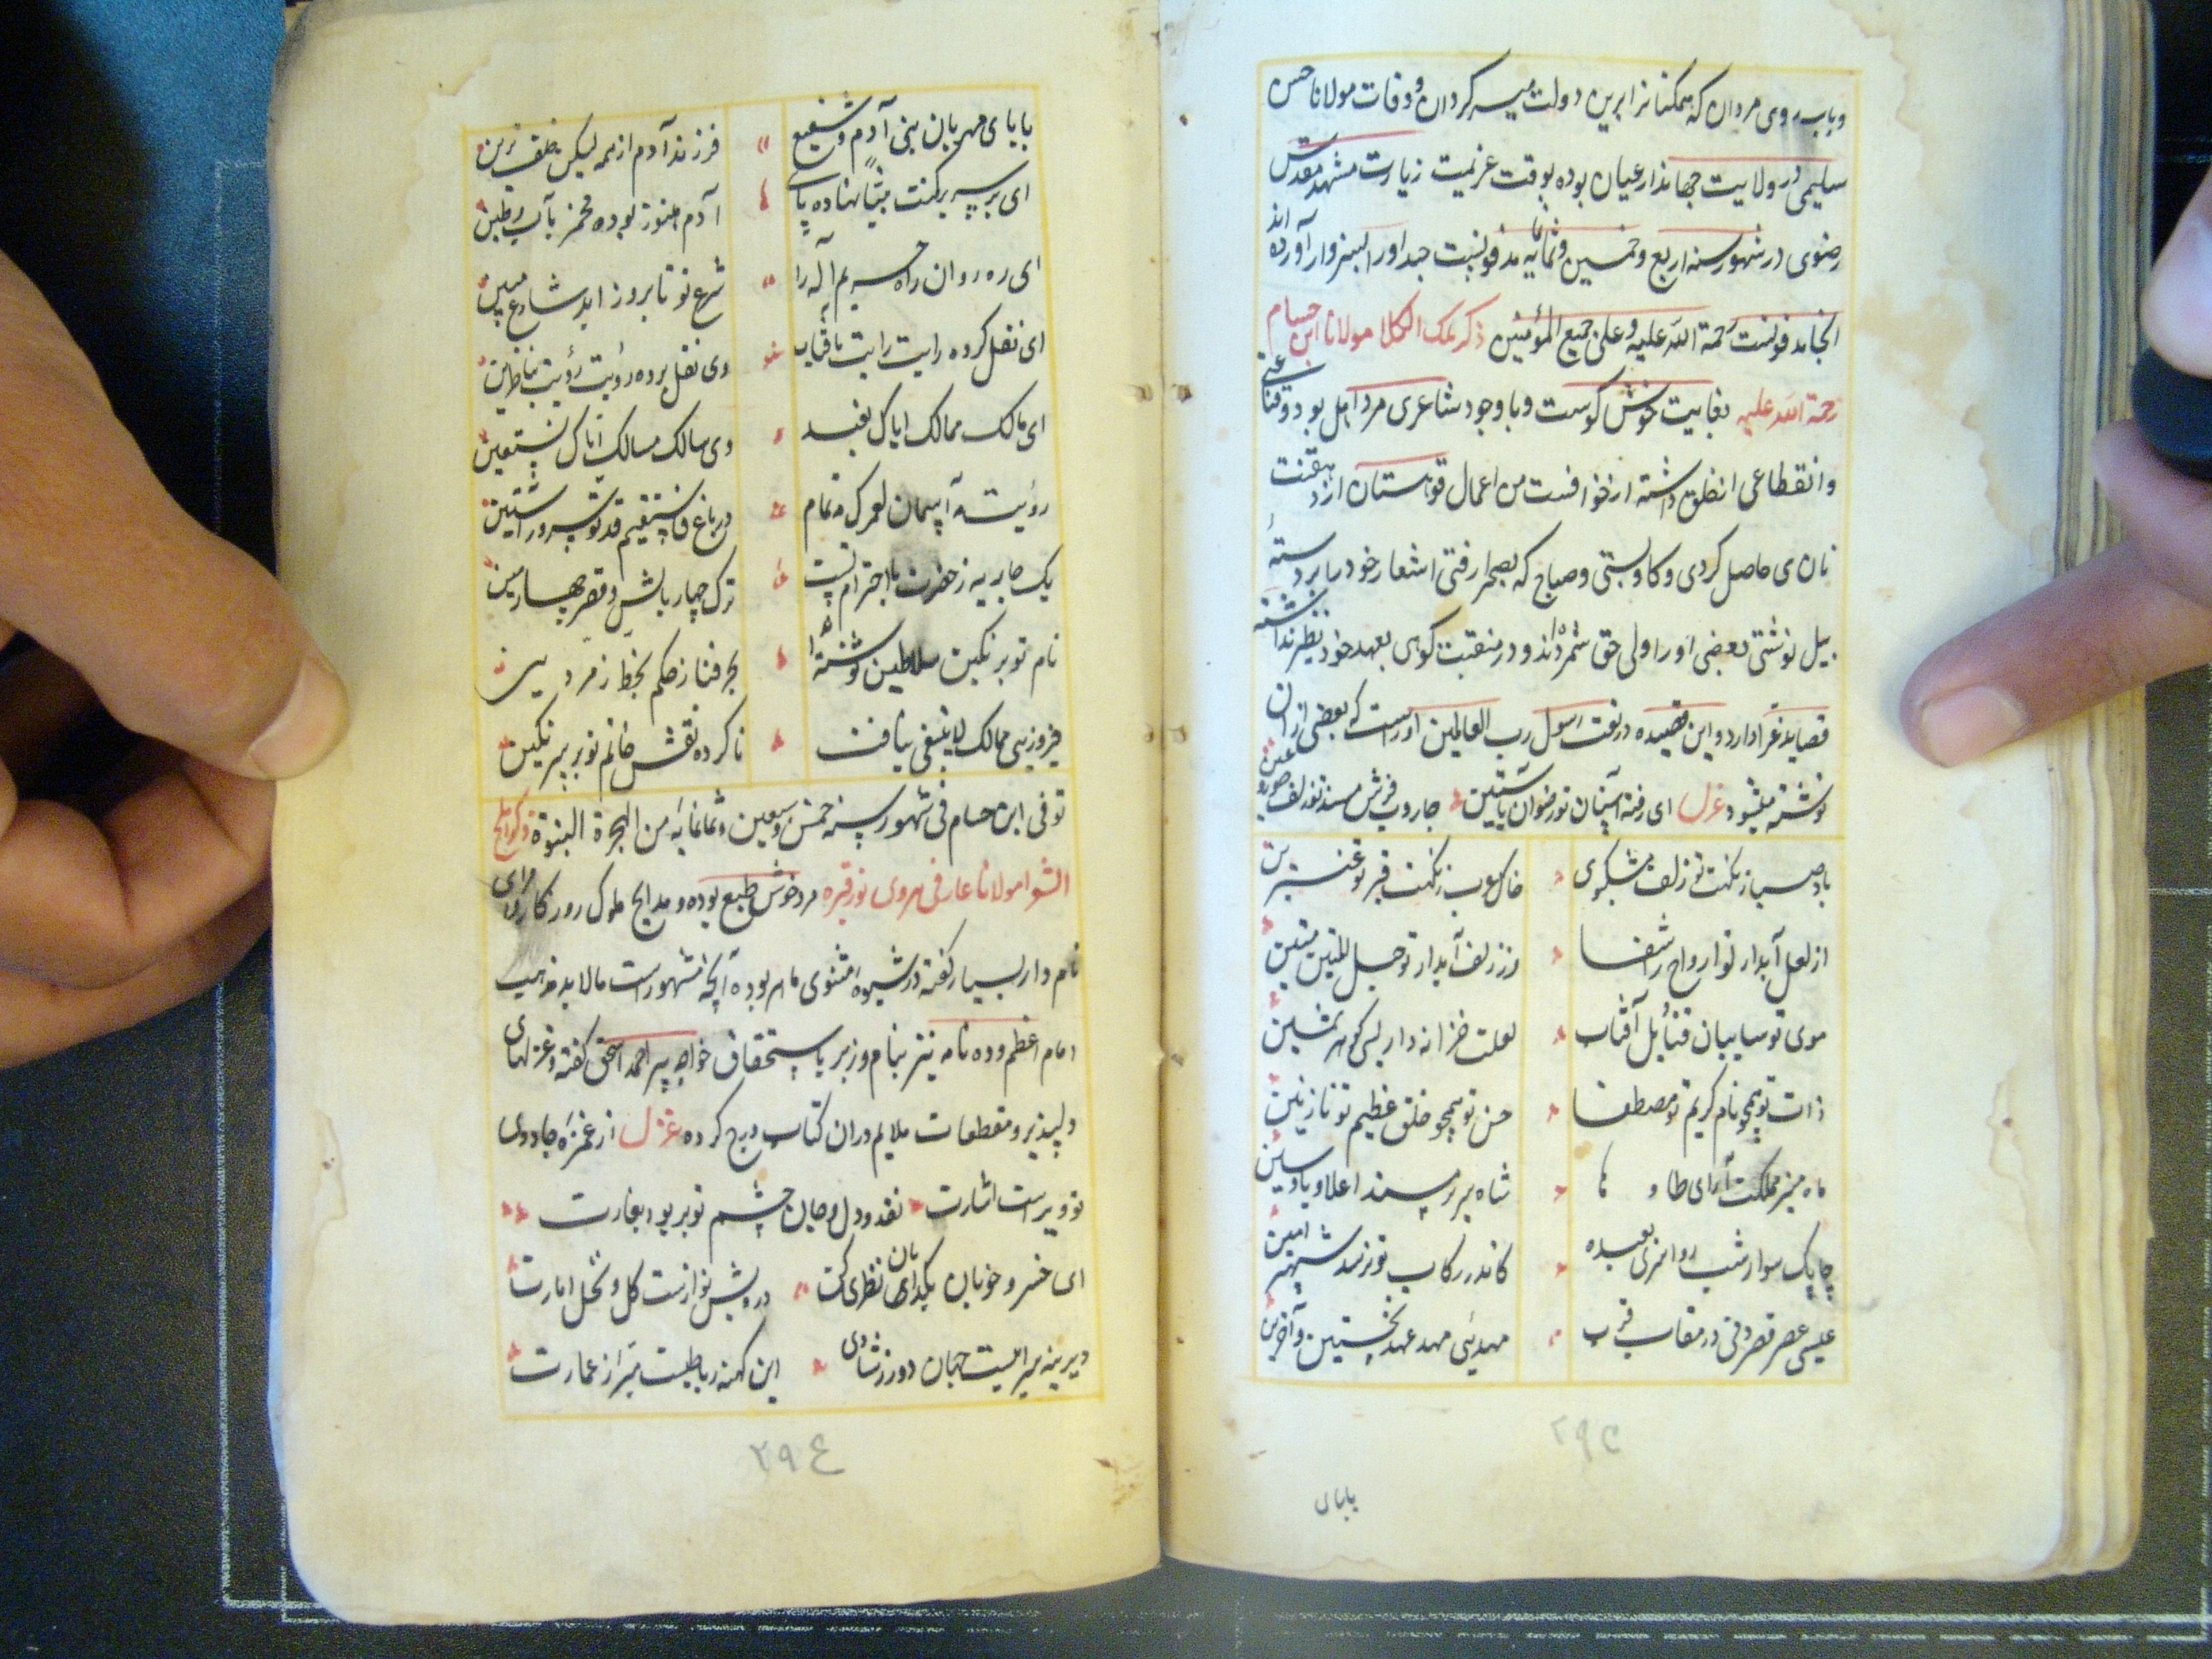 و باب روی مردان که همکنانرا برین دولت میسر گردان و وفات مولانا حسن
سلیمی در ولایت جهانداران بوده بوقت عزیمت زیارت مشهد مقدس
رضوی در شهور سنه اربع و خمسین و ثمانمایه مدفونست جسد او را بسبزوار آورده اند
انجا مدفونست رحمة الله علیه و علی جمیع المؤمنین ذکر ملک الکلام مولانا ابن حسام
رحمة الله علیه بغایت خوش گوست و با وجود شاعری مرد اهل بود و قناعتی
و انقطاعی از خلق داشته از خوافست من اعمال قوهستان از دهقنت
نان ی حاصل کردی و کاو بستی و صباح که بصحرا رفتی اشعار خود را بر دستهٔ
بیل نوشتی بعضی او را ولی حق شمرده اند و در منقبت گوئی بعهد خود نظیر نداشته
قصاید غرا دارد و این قصیده در نعت رسول رب العالمین اوراست که بعضی از ان
نوشته میشود غزل ای رفته آستان تو رضوان بآستین جاروب فرش مسند تو زلف حور عین
باد صبا ز نکهت تو زلف مشکبوی
خاک عرب ز نکهت قبر تو عنبرین
از لعل آبدار تو ارواح را شفا
وز زلف آبدار تو حبل المتین متین
موی تو سایبان قنادیل آفتاب
لعلت خزانه دار بسی گوهر ثمین
ذات تو همچو نام کریم تو مصطفا
حسن تو همچو خلق عظیم تو نازنین
ماه منیر مملکت آرای طا و ها
شاه سریر مسند اعلا و یاوسین
چابک سوار شب رو اسری بعبده
کاندر رکاب تو نرسد شهپر امین
عیسی عصر قصر دنی در مقاب قرب
مهدئی مهد عهد نخستین و آخرین
۲۹۳
بابای
بابای مهربان بنی آدم و شفیع
فرزند آدم از همه لیکن خلف ترین
ای بر سریر کنت نبیّا نهاده پای
آدم هنوز بوده مخمر بآب و طین
ای ره روان راه حریم اله را
شرع تو تا بروز ابد شارع مبین
ای نقل کرده رایت رایت بافتاب
وی نقل برده رؤیت رؤیت بناظرین
ای مالک ممالک ایاک نعبد
وی سالک مسالک ایاک نستعین
رویت مه آسمان لعمرک مه تمام
در باغ فاستقیم قد تو سرو راستین
یک جاریه ز حضرت با احترام تست
ترک چهار بالش و قصر چهارمین
نام تو بر نکین سلاطین نوشته اند
بحر فنا ز حکم بخط زمردین
فیروزیی ممالک لاینبغی نیافت
ناکرده نقش خاتم تو بر سر نکین
توفی ابن حسام فی شهور سنه خمس و سبعین و ثمانمایه من الهجرة النبویة ذکر املح
الشعرا مولانا عارفی هروی نور قبره مرد خوش طبع بوده و مدایح ملوک روزکار و امرای
نامدار بسیار گفته در شیوه مثنوی ماهر بوده آنچه مشهورست مالابد مذهب
امام اعظم و ده نامه نیز بنام وزیر باستحقاق خواجه پیر احمد اسحق گفته و غزلهای
دلپذیر و مقطعات ملایم دران کتاب درج کرده غزل از غمزه جادوی
تو ویراست اشارت نقد و دل و جان چشم تو بر بود بغارت
ای خسرو خوبان بگدایان نظری کن
درویش نوازیست کل و نخل امارت
دیرینه سراییست جهان دور ز شادی
این کهنه رباطیست مبرّا ز عمارت
۲۹٤